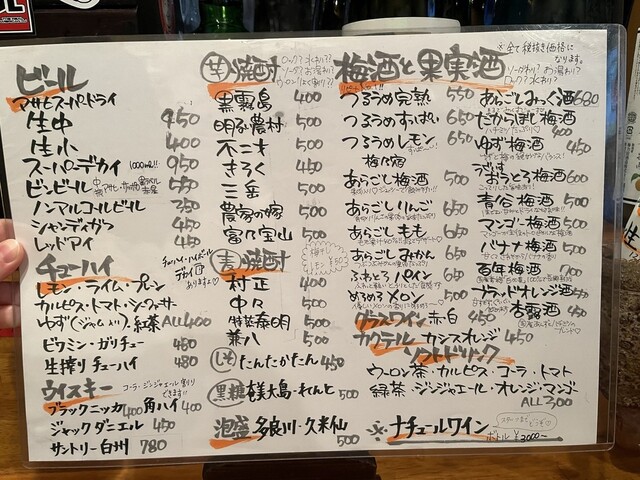 ビール
アサヒスーパードライ
生中 450
生小 400
スーパーデカイ 1000ml!! 950
ビンビール 550
ノンアルコールビール 350
シャンディガフ 450
レッドアイ 450
チューハイ
レモン・ライム・プレーン
カルピス・トマト・シークヮーサー
ゆず(ジャム入り)、紅茶 ALL400
ビタミン・ガリチュー 450
生搾りチューハイ 480
チューハイ・ハイボール
デカイ
あります♡
ウイスキー
コーラ・ジンジャエール割り
できます!!
ブラックニッカ 400 角ハイ 400
ジャックダニエル 450
サントリー白州 780
芋焼酎
ロック?水わり??
ソーダ?お湯わり?
黒霧島 400
明るい農村 500
不二才 500
きろく 450
三岳 500
農家の嫁 500
富乃宝山 500
麦焼酎
村正 400
中々 500
特蒸泰明 500
兼八 500
しそ たんたかたん 450
黒糖 奄美大島・れんと 500
泡盛 多良川・久米仙 500
梅酒と果実酒
※全て税抜き価格に
なります。
ソーダわり?お湯わり?
ロック?水わり?
つるうめ完熟 550
つるうめすっぱい 650
つるうめレモン 650
梅乃宿
あらごし梅酒 500
あらごしりんご 650
あらごしもも 650
あらごしみかん 650
ふわとろパイン 650
めろめろメロン 500
あらごしみっく酒 680
だからぼし梅酒 400
ゆず梅酒 450
うぐいすまったり梅酒 600
青谷梅酒 500
マンゴー梅酒 500
バナナ梅酒 500
百年梅酒 700
ブラッドオレンジ酒 550
杏露酒 450
グラスワイン 赤・白 450
カクテル カシスオレンジ 450
ソフトドリンク
ウーロン茶・カルピス・コーラ・トマト
緑茶・ジンジャエール・オレンジ・マンゴー
ALL300
※ナチュールワイン
ボトル ¥3000〜